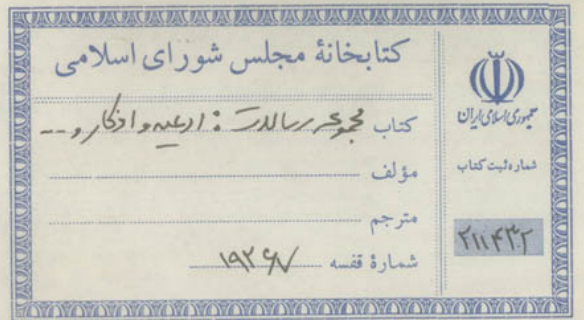 کتابخانهٔ مجلس شورای اسلامی
کتاب مجموعه رسالات : ادعیه و اذکار و --
مؤلف
مترجم
شمارهٔ قفسه ۱۹۲۶۷
جمهوری اسلامی ایران
شماره ثبت کتاب
۲۱۱۴۳۲